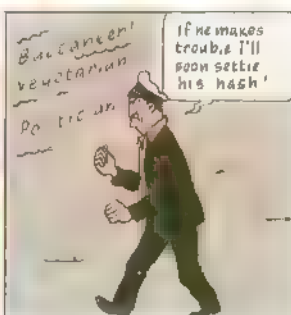 Buccaneer!
Vegetarian
Politician
If he makes
trouble I'll
soon settle
his hash!